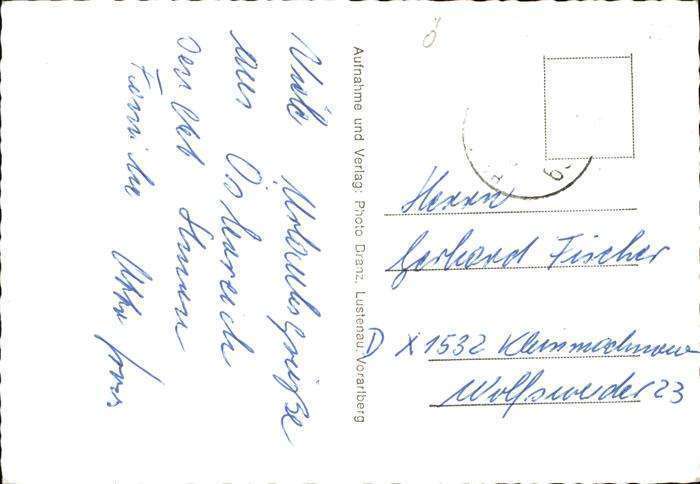 Viele Urlaubsgrüße
aus Österreich
sendet Ihnen
Familie
Aufnahme und Verlag: Photo Branz, Lustenau, Vorarlberg
Herrn
Gerhard Fischer
D X 1532 Kleinmachnow
Wolfswerder 23